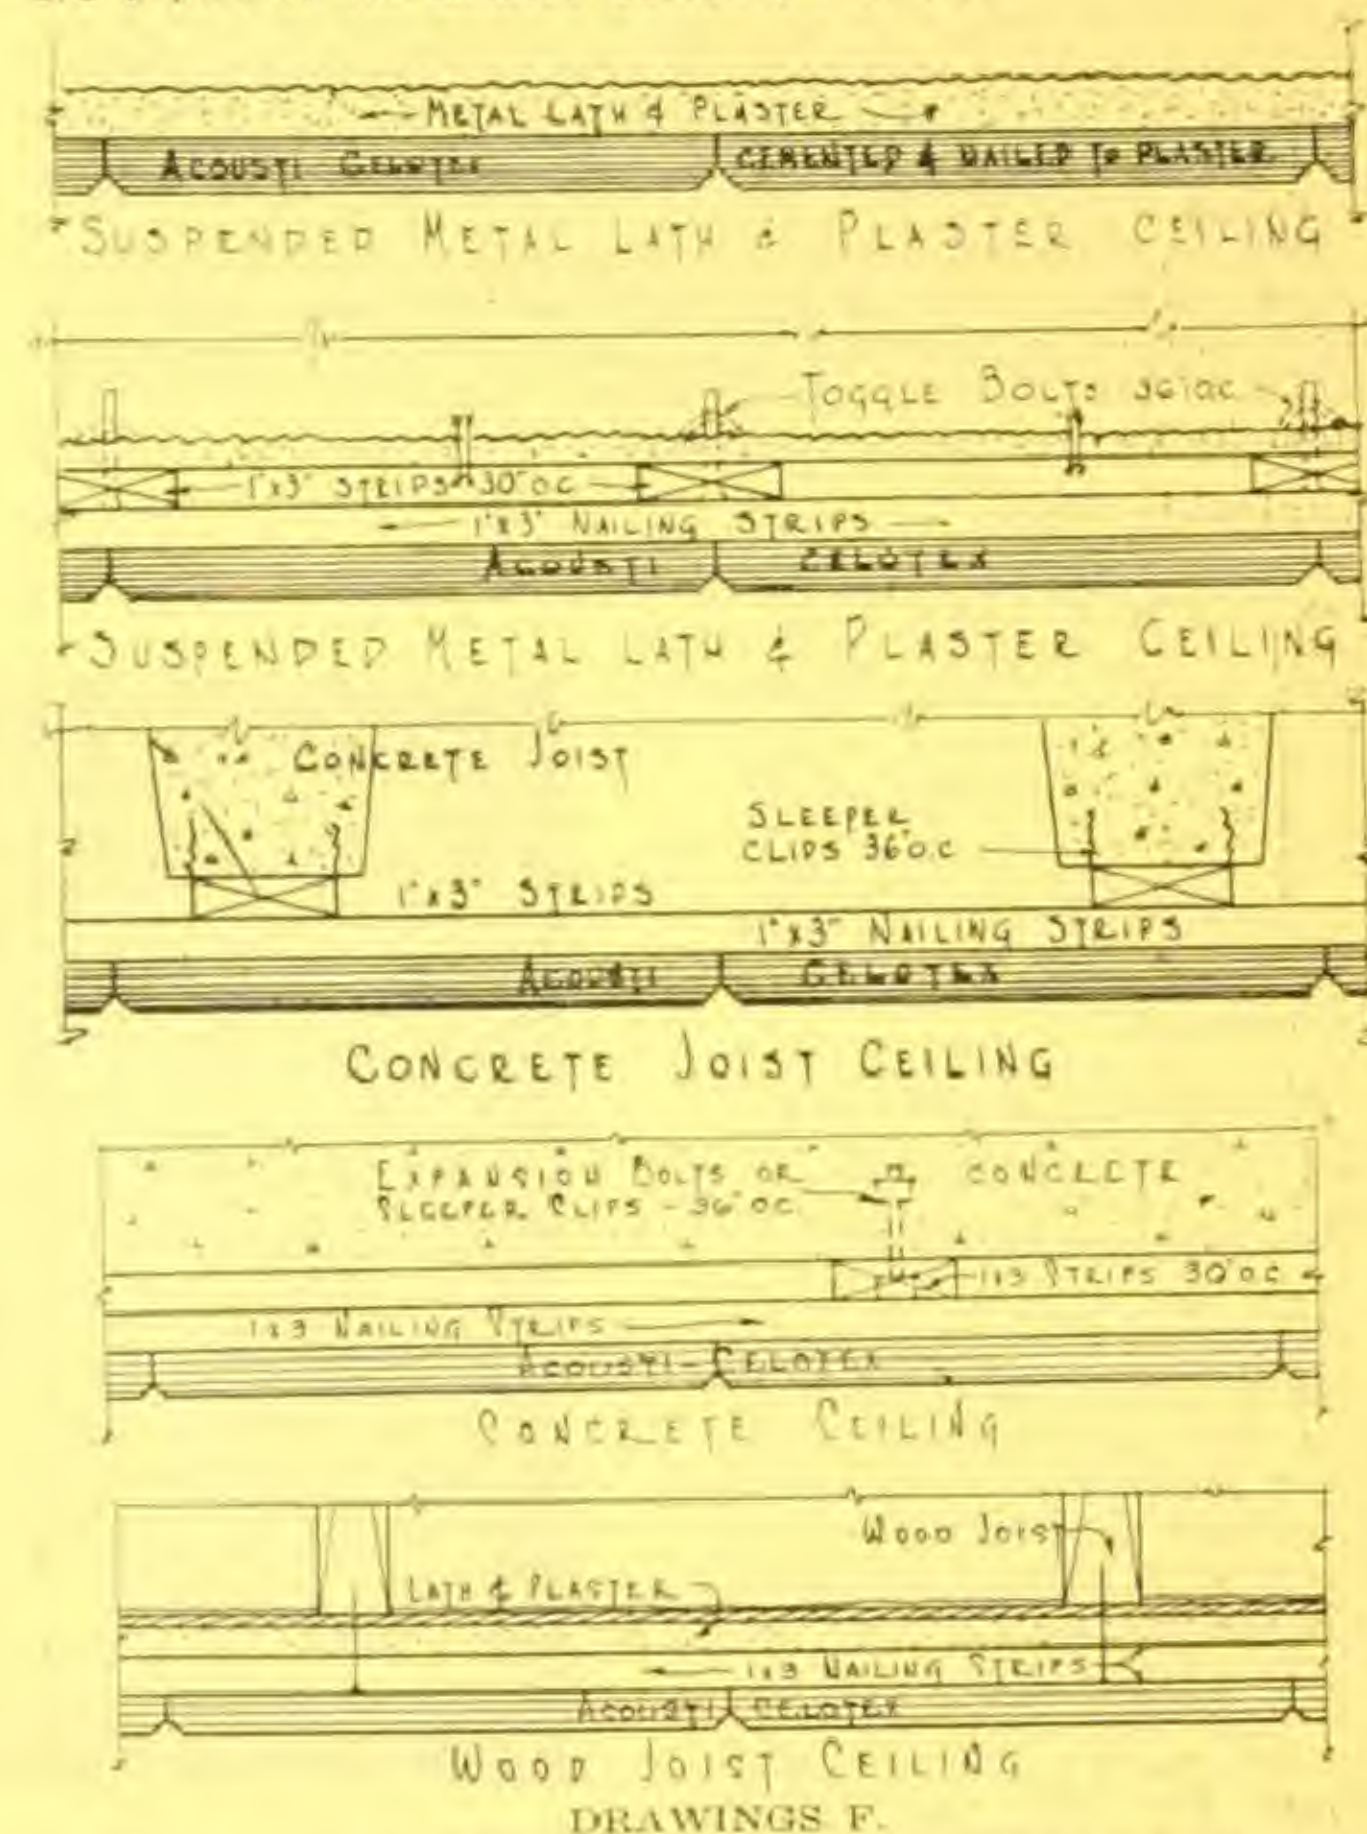 METAL LATH & PLASTER
ACOUSTI CELOTEX CEMENTED & NAILED TO PLASTER
SUSPENDED METAL LATH & PLASTER CEILING
TOGGLE BOLTS 36" O.C.
1"x3" STRIPS 30" O.C.
1"x3" NAILING STRIPS
ACOUSTI CELOTEX
SUSPENDED METAL LATH & PLASTER CEILING
CONCRETE JOIST
SLEEPER
CLIPS 36" O.C.
1"x3" STRIPS
1"x3" NAILING STRIPS
ACOUSTI CELOTEX
CONCRETE JOIST CEILING
EXPANSION BOLTS OR CONCRETE
SLEEPER CLIPS - 36" O.C.
1x3 STRIPS 30" O.C.
1x3 NAILING STRIPS
ACOUSTI-CELOTEX
CONCRETE CEILING
WOOD JOIST
LATH & PLASTER
1x3 NAILING STRIPS
ACOUSTI CELOTEX
WOOD JOIST CEILING
DRAWINGS F.